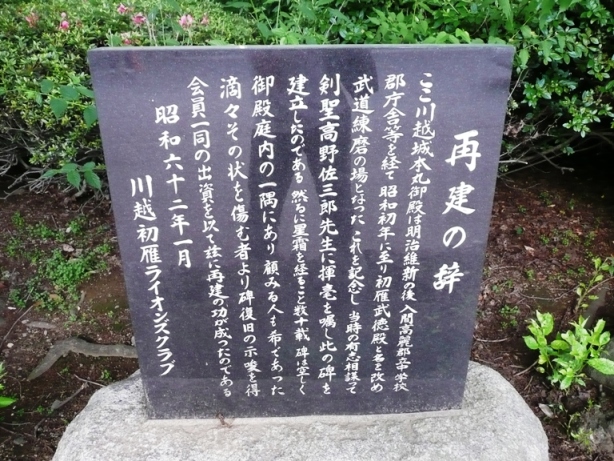 再建の辞
ここ川越城本丸御殿は明治維新の後入間高麗郡立中学校
郡庁舎等を経て昭和初年に至り初雁武徳殿と名を改め
武道練磨の場となった これを記念し 当時の有志相謀って
剣聖高野佐三郎先生に揮毫を嘱し此の碑を
建立したのである 然るに星霜を経ること数十載 碑は空しく
御殿庭内の一隅にあり 顧みる人も希であった
滴々その状を傷む者より碑復旧の示唆を得
会員一同の出資を以て茲に再建の功が成ったのである
昭和六十二年一月
川越初雁ライオンズクラブ